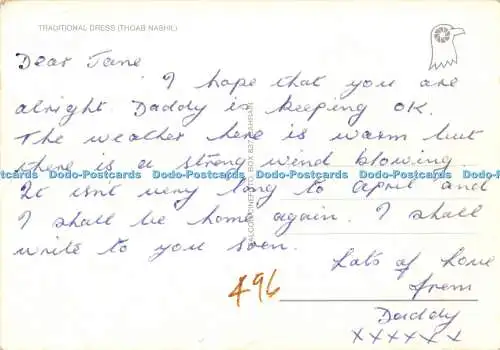 TRADITIONAL DRESS (THOAB NASHIL)
Dear Jane
I hope that you are
alright. Daddy is keeping OK.
The weather here is warm but
there is a strong wind blowing.
Dodo-Postcards Dodo-Postcards Dodo-Postcards Dodo-Postcards Dodo-Postcards
It isn't very long to April and
I shall be home again. I shall
write to you soon.
Lots of Love
from
Daddy
xxxxxx
496
BOX 837 BAHRAIN